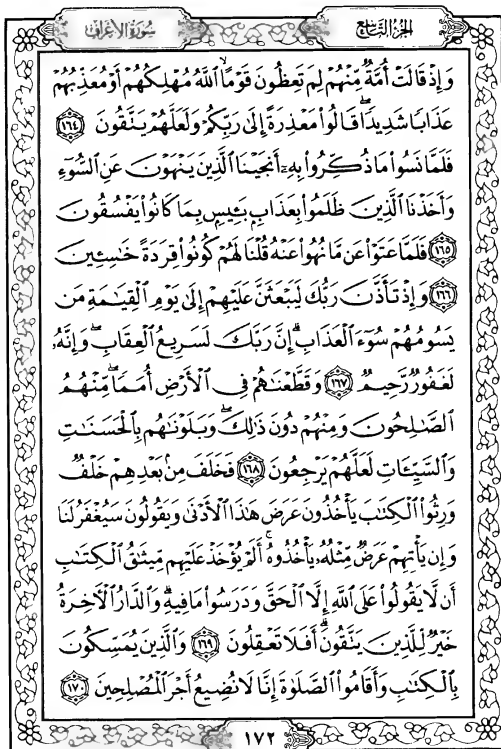 سُورَةُ الأَعۡرَافِ
الجُزۡءُ التَّاسِعُ
وَإِذۡ قَالَتۡ أُمَّةٞ مِّنۡهُمۡ لِمَ تَعِظُونَ قَوۡمًا ٱللَّهُ مُهۡلِكُهُمۡ أَوۡ مُعَذِّبُهُمۡ
عَذَابٗا شَدِيدٗاۖ قَالُواْ مَعۡذِرَةً إِلَىٰ رَبِّكُمۡ وَلَعَلَّهُمۡ يَتَّقُونَ ١٦٤
فَلَمَّا نَسُواْ مَا ذُكِّرُواْ بِهِۦٓ أَنجَيۡنَا ٱلَّذِينَ يَنۡهَوۡنَ عَنِ ٱلسُّوٓءِ
وَأَخَذۡنَا ٱلَّذِينَ ظَلَمُواْ بِعَذَابِۭ بَـِٔيسِۭ بِمَا كَانُواْ يَفۡسُقُونَ
١٦٥ فَلَمَّا عَتَوۡاْ عَن مَّا نُهُواْ عَنۡهُ قُلۡنَا لَهُمۡ كُونُواْ قِرَدَةً خَٰسِـِٔينَ
١٦٦ وَإِذۡ تَأَذَّنَ رَبُّكَ لَيَبۡعَثَنَّ عَلَيۡهِمۡ إِلَىٰ يَوۡمِ ٱلۡقِيَٰمَةِ مَن
يَسُومُهُمۡ سُوٓءَ ٱلۡعَذَابِۗ إِنَّ رَبَّكَ لَسَرِيعُ ٱلۡعِقَابِ وَإِنَّهُۥ
لَغَفُورٞ رَّحِيمٞ ١٦٧ وَقَطَّعۡنَٰهُمۡ فِي ٱلۡأَرۡضِ أُمَمٗاۖ مِّنۡهُمُ
ٱلصَّٰلِحُونَ وَمِنۡهُمۡ دُونَ ذَٰلِكَۖ وَبَلَوۡنَٰهُم بِٱلۡحَسَنَٰتِ
وَٱلسَّيِّـَٔاتِ لَعَلَّهُمۡ يَرۡجِعُونَ ١٦٨ فَخَلَفَ مِنۢ بَعۡدِهِمۡ خَلۡفٞ
وَرِثُواْ ٱلۡكِتَٰبَ يَأۡخُذُونَ عَرَضَ هَٰذَا ٱلۡأَدۡنَىٰ وَيَقُولُونَ سَيُغۡفَرُ لَنَا
وَإِن يَأۡتِهِمۡ عَرَضٞ مِّثۡلُهُۥ يَأۡخُذُوهُۚ أَلَمۡ يُؤۡخَذۡ عَلَيۡهِم مِّيثَٰقُ ٱلۡكِتَٰبِ
أَن لَّا يَقُولُواْ عَلَى ٱللَّهِ إِلَّا ٱلۡحَقَّ وَدَرَسُواْ مَا فِيهِۗ وَٱلدَّارُ ٱلۡأٓخِرَةُ
خَيۡرٞ لِّلَّذِينَ يَتَّقُونَۚ أَفَلَا تَعۡقِلُونَ ١٦٩ وَٱلَّذِينَ يُمَسِّكُونَ
بِٱلۡكِتَٰبِ وَأَقَامُواْ ٱلصَّلَوٰةَ إِنَّا لَا نُضِيعُ أَجۡرَ ٱلۡمُصۡلِحِينَ ١٧٠
١٧٢